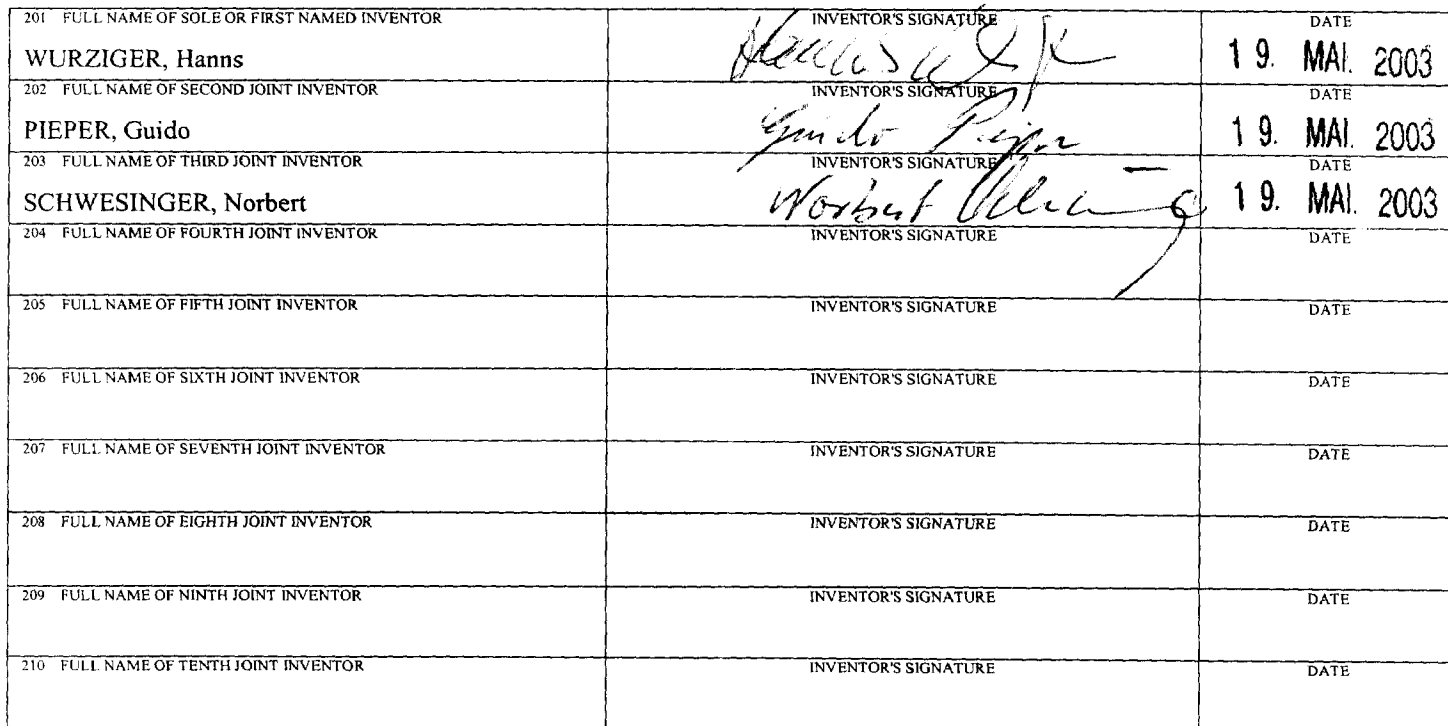 201 FULL NAME OF SOLE OR FIRST NAMED INVENTOR INVENTOR'S SIGNATURE DATE
WURZIGER, Hanns 19. MAI. 2003
202 FULL NAME OF SECOND JOINT INVENTOR INVENTOR'S SIGNATURE DATE
PIEPER, Guido Guido Pieper 19. MAI. 2003
203 FULL NAME OF THIRD JOINT INVENTOR INVENTOR'S SIGNATURE DATE
SCHWESINGER, Norbert Norbert 19. MAI. 2003
204 FULL NAME OF FOURTH JOINT INVENTOR INVENTOR'S SIGNATURE DATE
205 FULL NAME OF FIFTH JOINT INVENTOR INVENTOR'S SIGNATURE DATE
206 FULL NAME OF SIXTH JOINT INVENTOR INVENTOR'S SIGNATURE DATE
207 FULL NAME OF SEVENTH JOINT INVENTOR INVENTOR'S SIGNATURE DATE
208 FULL NAME OF EIGHTH JOINT INVENTOR INVENTOR'S SIGNATURE DATE
209 FULL NAME OF NINTH JOINT INVENTOR INVENTOR'S SIGNATURE DATE
210 FULL NAME OF TENTH JOINT INVENTOR INVENTOR'S SIGNATURE DATE